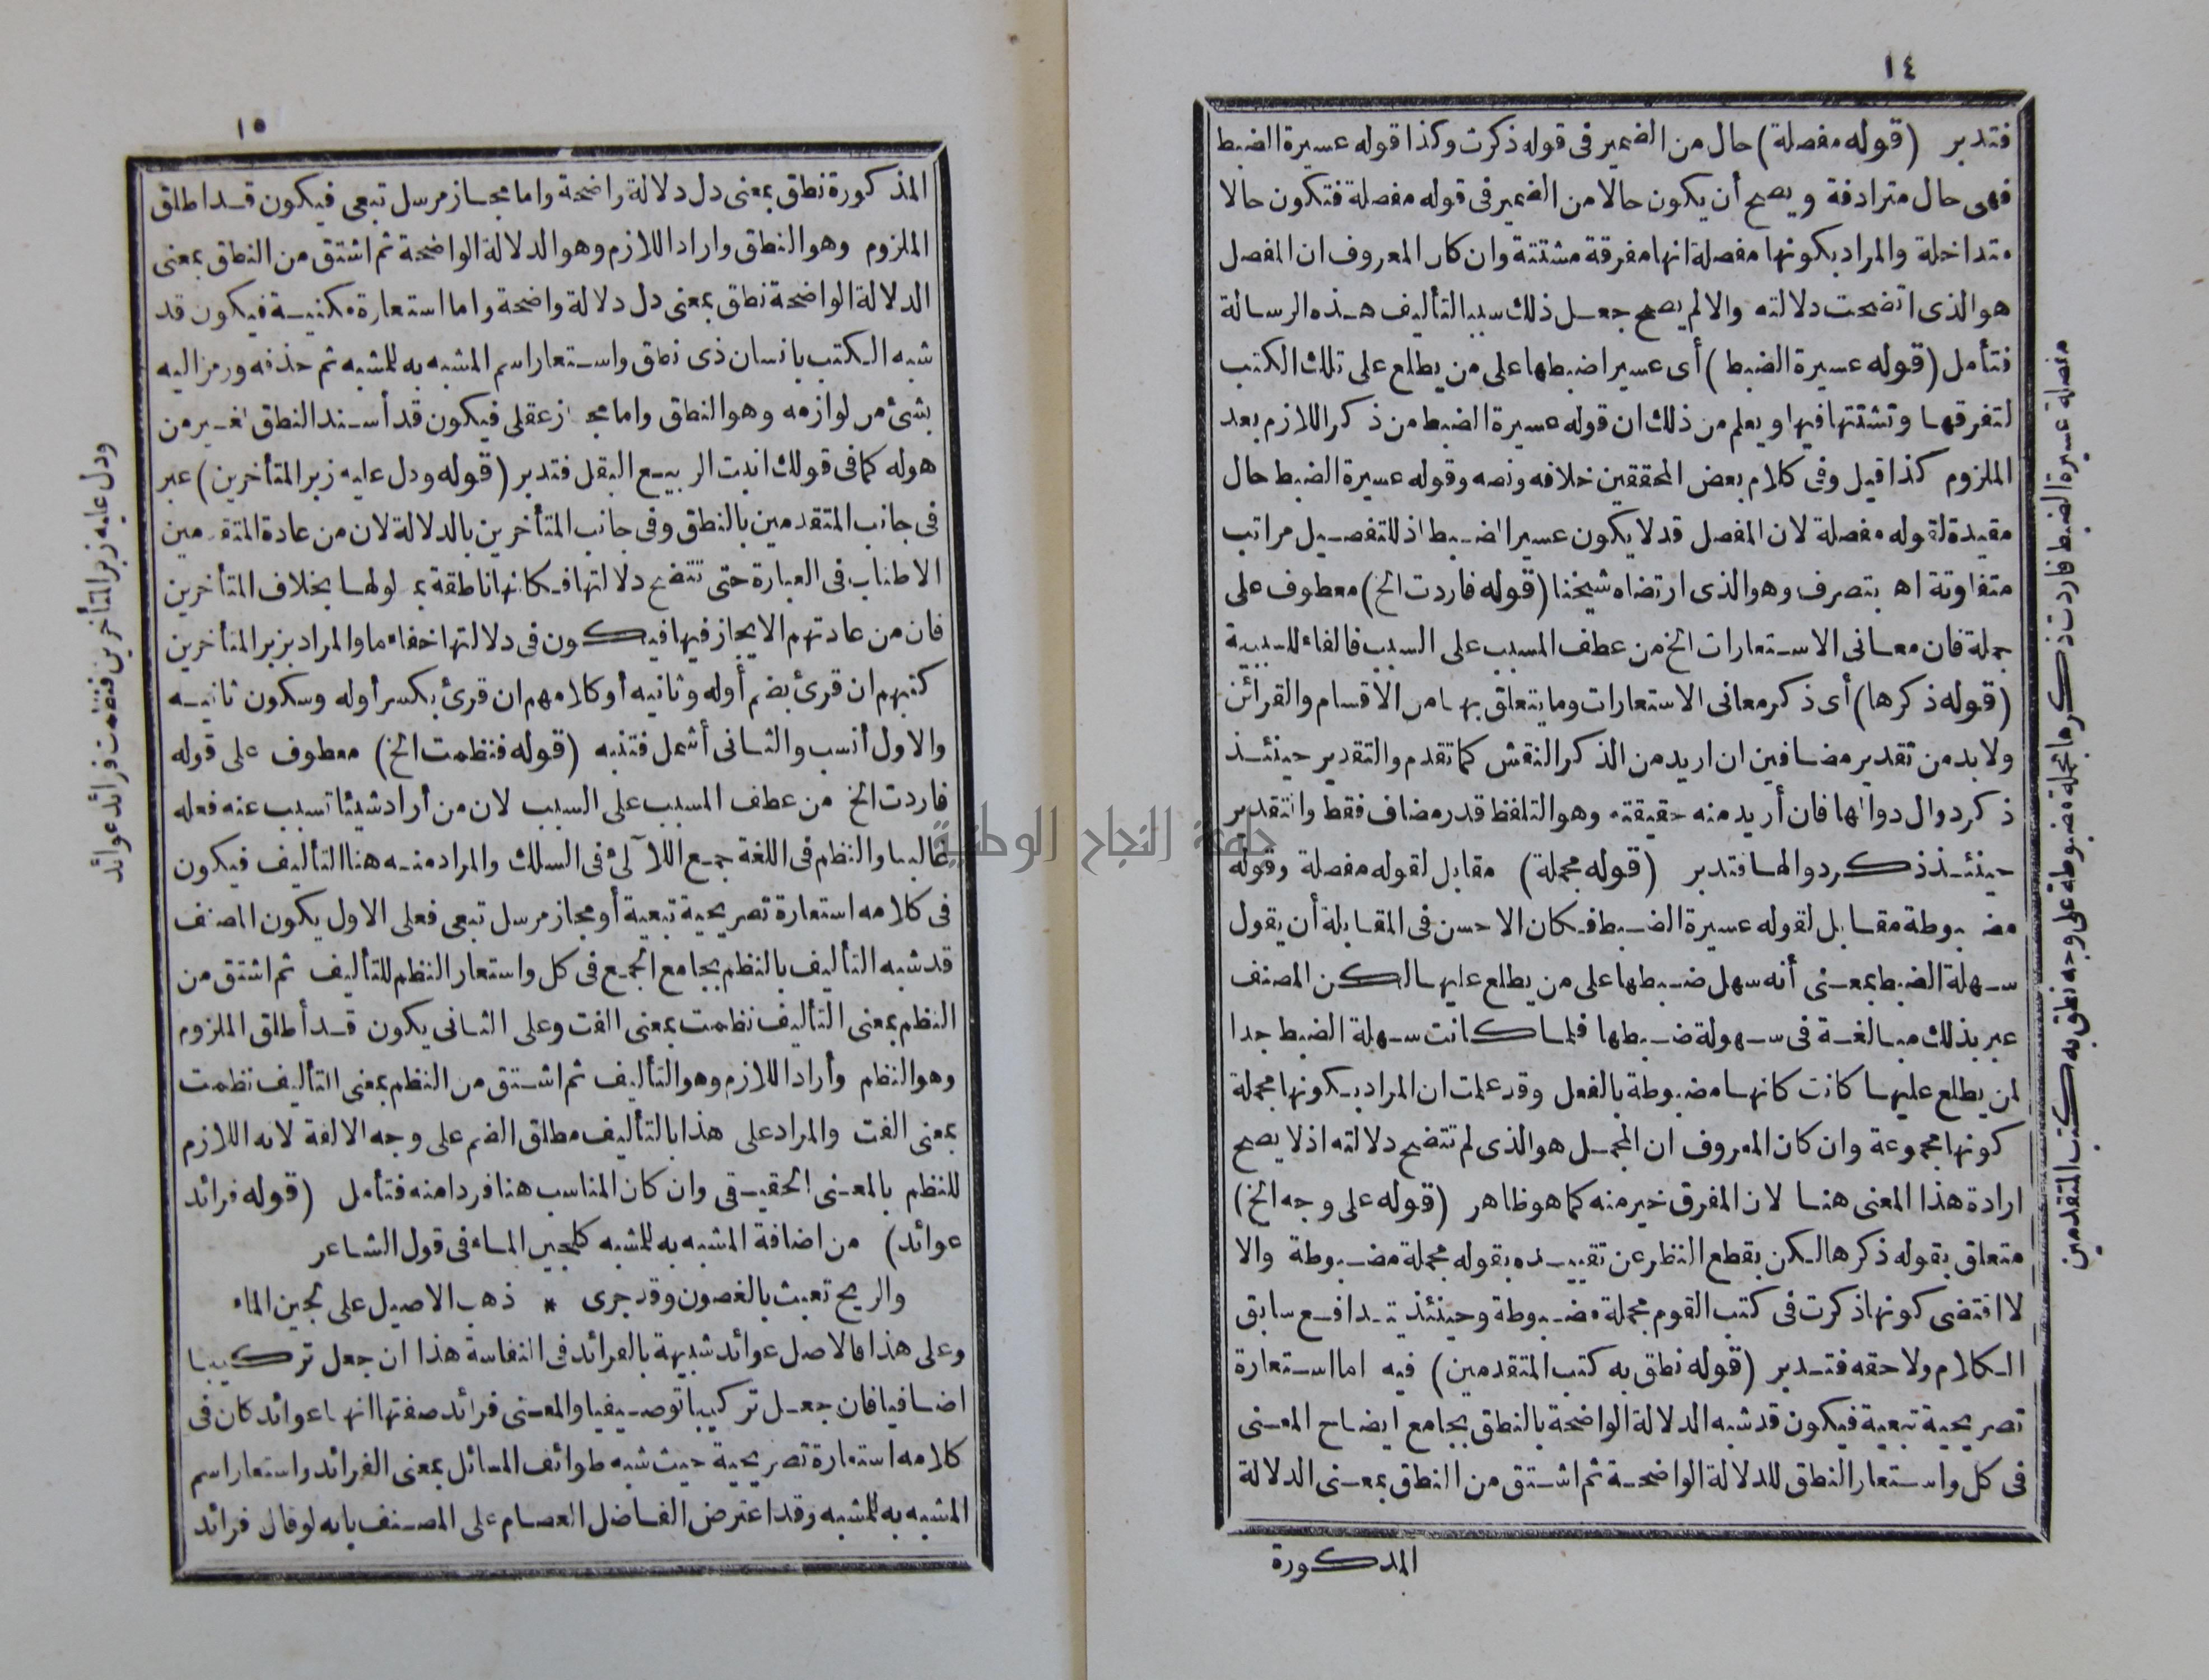 ١٤
فتدبر (قوله مفصلة) حال من الضمير فى قوله ذكرت وكذا قوله عسيرة الضبط
فهى حال مترادفة ويصح أن يكون حالا من الضمير فى قوله مفصلة فتكون حالا
متداخلة والمراد بكونها مفصلة انها مفرقة مشتتة وان كان المعروف ان المفصل
هو الذى اتضحت دلالته والا لم يصح جعل ذلك سببا لتأليف هذه الرسالة
فتأمل (قوله عسيرة الضبط) أى عسيرا ضبطها على من يطلع على تلك الكتب
لتفرقها وتشتتها فيها ويعلم من ذلك ان قوله عسيرة الضبط من ذكر اللازم بعد
الملزوم كذا قيل وفى كلام بعض المحققين خلافه ونصه وقوله عسيرة الضبط حال
مقيدة لقوله مفصلة لان المفصل قد لا يكون عسير الضبط اذ للتفصيل مراتب
متفاوتة اه بتصرف وهو الذى ارتضاه شيخنا (قوله فاردت الخ) معطوف على
جملة فان معانى الاستعارات الخ من عطف المسبب على السبب فالفاء للسببية
(قوله ذكرها) أى ذكر معانى الاستعارات وما يتعلق بها من الاقسام والقرائن
ولا بد من تقدير مضافين ان اريد من الذكر النقش كما تقدم والتقدير حينئذ
ذكر دوال دوالها فان أريد منه حقيقته وهو التلفظ قدر مضاف فقط والتقدير
حينئذ ذكر دوالها فتدبر (قوله مجملة) مقابل لقوله مفصلة وقوله
مضبوطة مقابل لقوله عسيرة الضبط فكان الاحسن فى المقابلة أن يقول
سهلة الضبط بمعنى أنه سهل ضبطها على من يطلع عليها لكن المصنف
عبر بذلك مبالغة فى سهولة ضبطها فلما كانت سهلة الضبط جدا
لمن يطلع عليها كانت كانها مضبوطة بالفعل وقد علمت ان المراد بكونها مجملة
كونها مجموعة وان كان المعروف ان المجمل هو الذى لم تتضح دلالته اذ لا يصح
ارادة هذا المعنى هنا لان المفرق خير منه كما هو ظاهر (قوله على وجه الخ)
متعلق بقوله ذكرها لكن بقطع النظر عن تقييده بقوله مجملة مضبوطة والا
لاقتضى كونها ذكرت فى كتب القوم مجملة مضبوطة وحينئذ يتدافع سابق
الكلام ولاحقه فتدبر (قوله نطق به كتب المتقدمين) فيه اما استعارة
تصريحية تبعية فيكون قد شبه الدلالة الواضحة بالنطق بجامع ايضاح المعنى
فى كل واستعار النطق للدلالة الواضحة ثم اشتق من النطق بمعنى الدلالة
المذكورة
مفصلة عسيرة الضبط فاردت ذكرها مجملة مضبوطة على وجه نطق به كتب المتقدمين
١٥
المذكورة نطق بمعنى دل دلالة واضحة واما مجاز مرسل تبعى فيكون قد اطلق
الملزوم وهو النطق واراد اللازم وهو الدلالة الواضحة ثم اشتق من النطق بمعنى
الدلالة الواضحة نطق بمعنى دل دلالة واضحة واما استعارة مكنية فيكون قد
شبه الكتب بانسان ذى نطق واستعار اسم المشبه به للمشبه ثم حذفه ورمز اليه
بشئ من لوازمه وهو النطق واما مجاز عقلى فيكون قد أسند النطق لغير من
هوله كما فى قولك انبت الربيع البقل فتدبر (قوله ودل عليه زبر المتأخرين) عبر
فى جانب المتقدمين بالنطق وفى جانب المتأخرين بالدلالة لان من عادة المتقدمين
الاطناب فى العبارة حتى تتضح دلالتها فكانها ناطقة بمدلولها بخلاف المتأخرين
فان من عادتهم الايجاز فيها فيكون فى دلالتها خفاء ما والمراد بزبر المتأخرين
كتبهم ان قرئ بضم أوله وثانيه أو كلامهم ان قرئ بكسر أوله وسكون ثانيه
والاول أنسب والثانى أشمل فتنبه (قوله فنظمت الخ) معطوف على قوله
فاردت الخ من عطف المسبب على السبب لان من أراد شيئا تسبب عنه فعله
غالبا والنظم فى اللغة جمع اللآلئ فى السلك والمراد منه هنا التأليف فيكون
فى كلامه استعارة تصريحية تبعية أو مجاز مرسل تبعى فعلى الاول يكون المصنف
قد شبه التأليف بالنظم بجامع الجمع فى كل واستعار النظم للتأليف ثم اشتق من
النظم بمعنى التأليف نظمت بمعنى الفت وعلى الثانى يكون قد أطلق الملزوم
وهو النظم وأراد اللازم وهو التأليف ثم اشتق من النظم بمعنى التأليف نظمت
بمعنى الفت والمراد على هذا بالتأليف مطلق الضم على وجه الالفة لانه اللازم
للنظم بالمعنى الحقيقى وان كان المناسب هنا فردا منه فتأمل (قوله فرائد
عوائد) من اضافة المشبه به للمشبه كلجين الماء فى قول الشاعر
والريح تعبث بالغصون وقد جرى * ذهب الاصيل على لجين الماء
وعلى هذا فالاصل عوائد شبيهة بالفرائد فى النفاسة هذا ان جعل تركيبا
اضافيا فان جعل تركيبا توصيفيا والمعنى فرائد صفتها انها عوائد كان فى
كلامه استعارة تصريحية حيث شبه طوائف المسائل بمعنى الفرائد واستعار اسم
المشبه به للمشبه وقد اعترض الفاضل العصام على المصنف بانه لو قال فرائد
ودل عليه زبر المتأخرين فنظمت فرائد عوائد
النجاح الوطنية